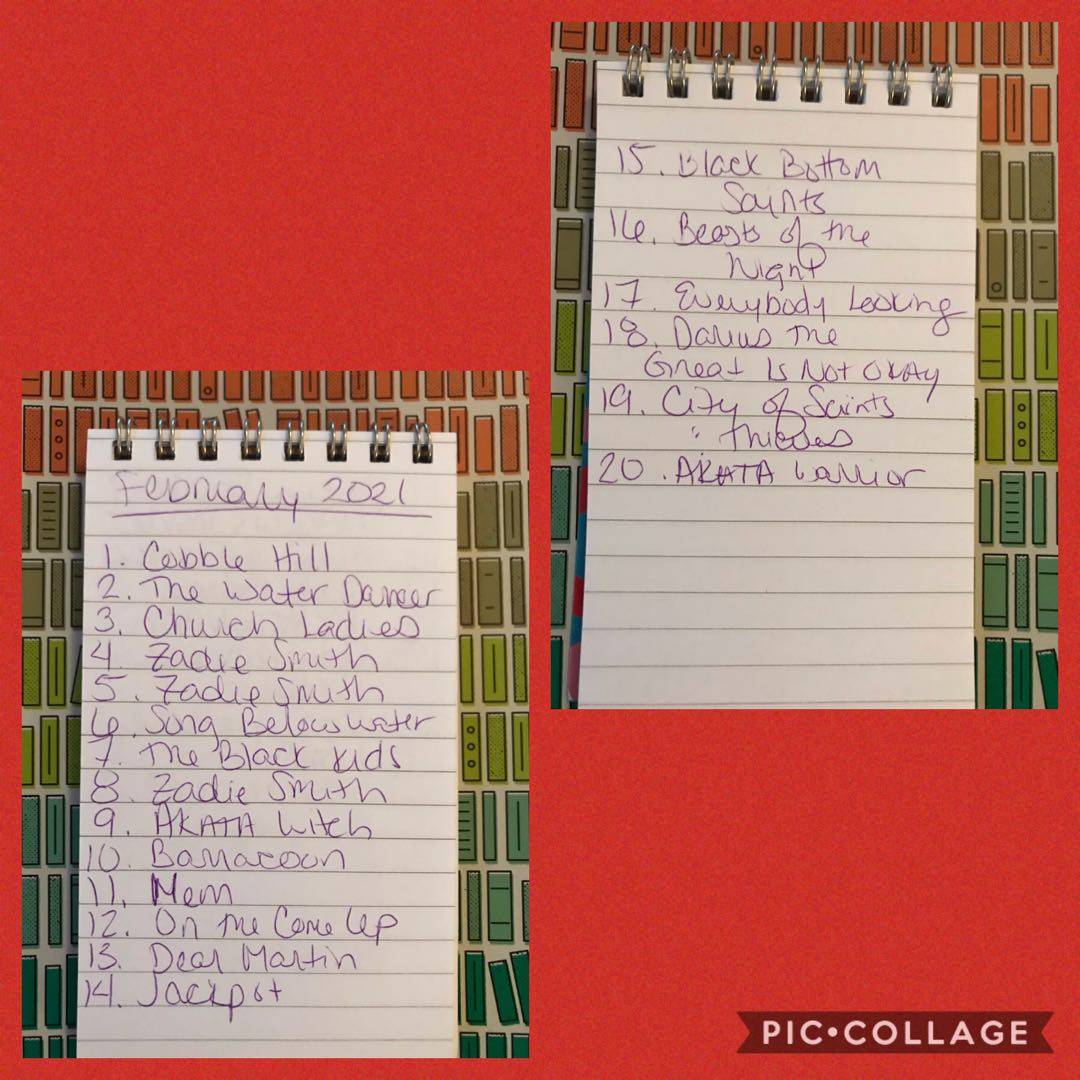 February 2021
1. Cobble Hill
2. The Water Dancer
3. Church Ladies
4. Zadie Smith
5. Zadie Smith
6. Song Below water
7. The Black Kids
8. Zadie Smith
9. AKATA Witch
10. Barracoon
11. Mem
12. On the Come Up
13. Dear Martin
14. Jackpot
15. Black Bottom
Saints
16. Beasts of the
Night
17. Everybody Looking
18. Darius the
Great Is Not OKAY
19. City of Saints
: Thieves
20. AKATA Warrior
PIC•COLLAGE